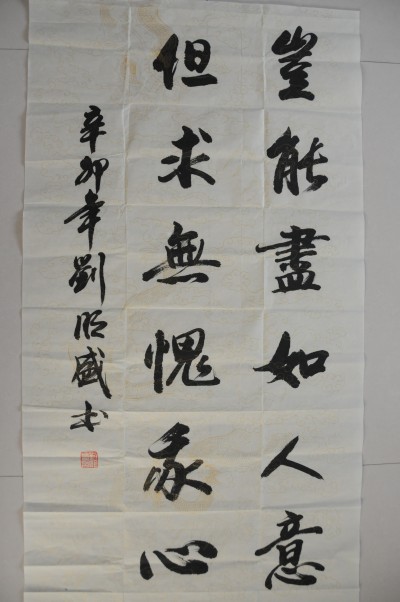 豈能盡如人意
但求無愧我心
辛卯年劉明盛书